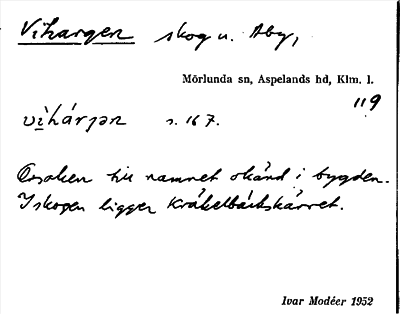 Vihargen skog u. Åby,
Mörlunda sn, Aspelands hd, Klm. l.
119
vìhárjən s. 167.
Orsaken till namnet okänd i bygden.
I skogen ligger Kråkelbärskärret.
Ivar Modéer 1952